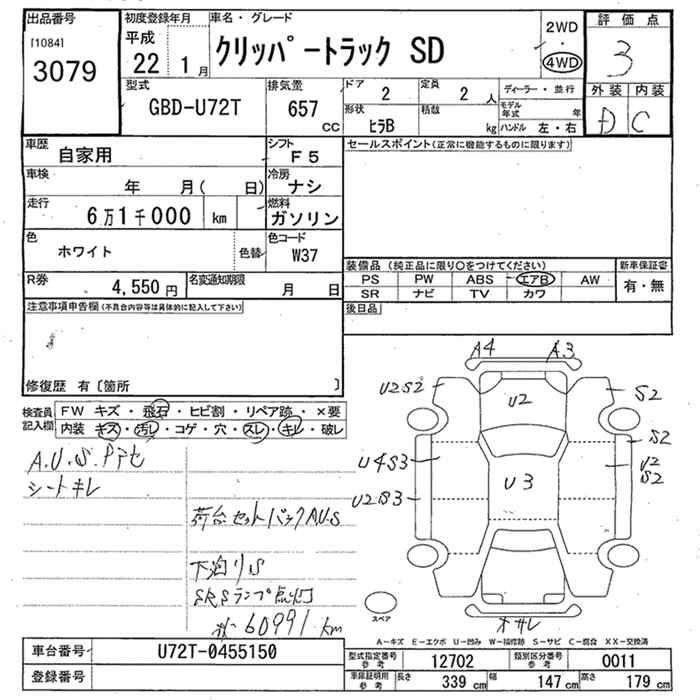 出品番号
[1084]
3079
初度登録年月
平成
22 1月
車名・グレード
クリッパートラック SD
2WD
・
4WD
評価点
3
外装 内装
D C
型式
GBD-U72T
排気量
657
CC
ドア
2
定員
2 人
形状
ヒラB
積載
kg
ディーラー・並行
モデル年式 年
ハンドル 左・右
車歴
自家用
シフト
F5
車検
年 月( 日)
冷房
ナシ
走行
6万1千000 km
燃料
ガソリン
色
ホワイト
色替
色コード
W37
R券
4,550円
名変通知期限
月 日
セールスポイント(正常に機能するものに限ります)
装備品 (純正品に限り○をつけてください)
PS PW ABS エアB AW
SR ナビ TV カワ
新車保証書
有・無
後日品
注意事項申告欄(不具合内容等は具体的に記入して下さい)
修復歴 有〔箇所 〕
検査員記入欄
FW キズ・飛石・ヒビ割・リペア跡・×要
内装 キズ・汚レ・コゲ・穴・スレ・キレ・破レ
A.U.S.P
シートキレ
荷台セットバックA.U.S
下泊りS
SRSランプ点灯
60991 km
A4 A3
U2S2
U2
S2
S2
U4S3
U2
S2
U3
U2S3
スペア
A-キズ E-エクボ U-凹み W-補修跡 S-サビ C-腐食 XX-交換済
車台番号
U72T-0455150
登録番号
型式指定番号
参考
12702
類別区分番号
参考
0011
車庫証明用
参考
長さ 339 cm
幅 147 cm
高さ 179 cm